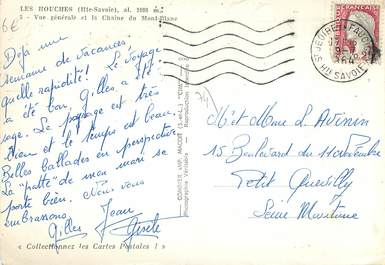 6€
LES HOUCHES (Hte-Savoie), al. 1008 m.
Vue générale et la Chaîne du Mont-Blanc
Déjà une
semaine de vacances,
quelle rapidité! Le voyage
a été bon, Gilles a été
sage. Le paysage est très
bien et le temps est beau
Belles ballades en perspective
La "patte" de mon mari se
porte bien. Nous vous
embrassons.
Gilles Jean
Gisèle
« Collectionnez les Cartes Postales ! »
COMBIER IMP. MACON
Photographie Véritable - Reproduction
FRANÇAISE
ST JEOIRE-EN-FAUCIGNY
HTE SAVOIE
74
M. et Mme L. Avinin
15 Boulevard du 11 Novembre
Petit Quevilly
Seine Maritime